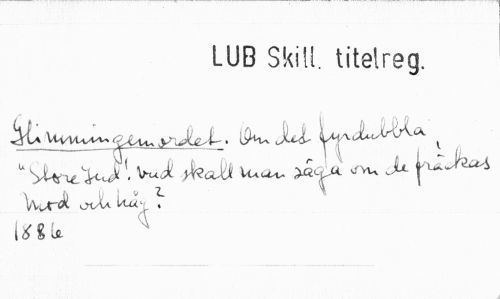 LUB Skill. titelreg.
Glimmingemordet. Om det fyrdubbla
"Store Gud! vad skall man säga om de fräckas
mod och håg?
1886